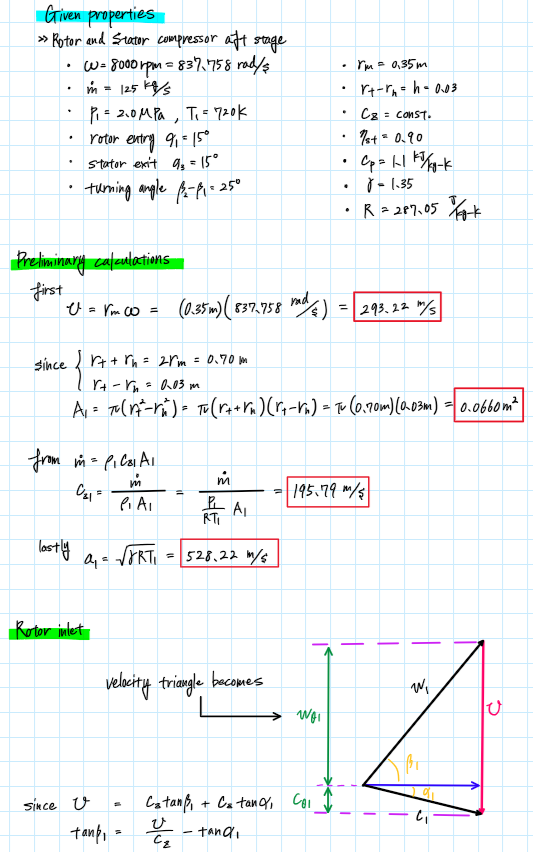 Given properties
>> Rotor and Stator compressor aft stage
• ω = 8000 rpm = 837.758 rad/s
• ṁ = 125 kg/s
• P₁ = 2.0 MPa, T₁ = 720K
• rotor entry α₁ = 15°
• stator exit α₃ = 15°
• turning angle β₂-β₁ = 25°
• rm = 0.35m
• rt-rh = h = 0.03
• Cz = const.
• ηst = 0.90
• Cp = 1.1 kJ/kg-K
• γ = 1.35
• R = 287.05 J/kg-K
Preliminary calculations
first
U = rm ω = (0.35m)(837.758 rad/s) = 293.22 m/s
since { rt + rh = 2rm = 0.70 m
rt - rh = 0.03 m
A₁ = π(rt²-rh²) = π(rt+rh)(rt-rh) = π(0.70m)(0.03m) = 0.0660m²
from ṁ = ρ₁ Cz1 A₁
Cz1 = ṁ / ρ₁ A₁ = ṁ / (P₁/RT₁) A₁ = 195.79 m/s
lastly a₁ = √γRT₁ = 528.22 m/s
Rotor inlet
velocity triangle becomes
Wθ1
W₁
U
β₁
α₁
Cθ1
C₁
since U = Cz tanβ₁ + Cz tanα₁
tanβ₁ = U/Cz - tanα₁